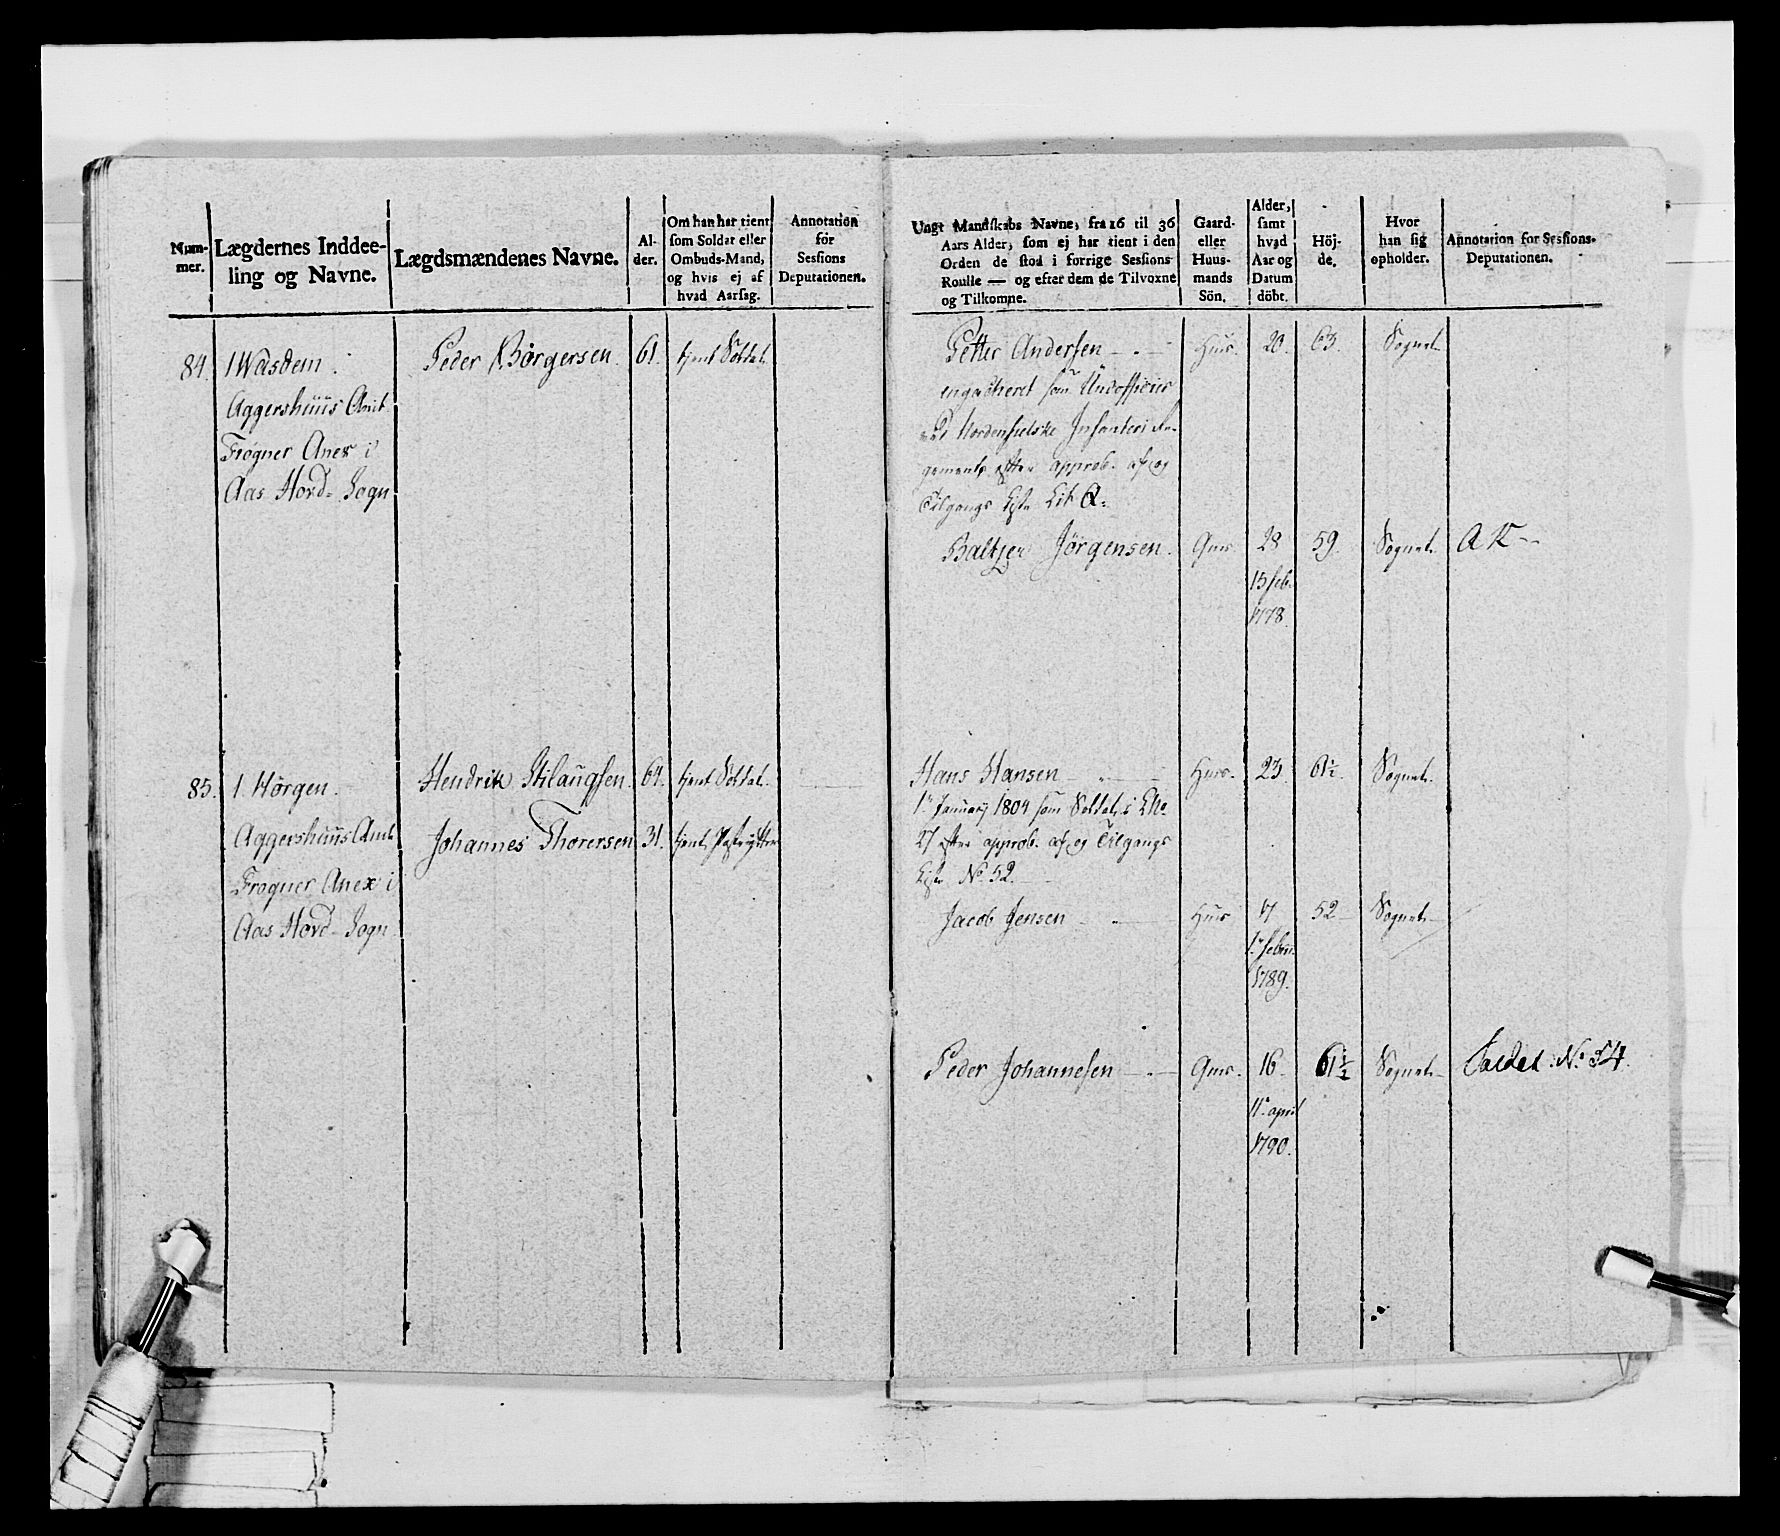 Num-
mer.
Lægdernes Inddee-
ling og Navne.
Lægdsmændenes Navne.
Al-
der.
Om han har tient
som Soldat eller
Ombuds-Mand,
og hvis ej af
hvad Aarsag.
Annotation
for
Sessions
Deputationen.
Ungt Mandskabs Navne, fra 16 til 36
Aars Alder, som ej har tient i den
Orden de stod i forrige Sessions
Roulle — og efter dem de Tilvoxne
og Tilkomne.
Gaard-
eller
Huus-
mands
Sön.
Alder,
samt
hvad
Aar og
Datum
döbt.
Höj-
de.
Hvor
han sig
opholder.
Annotation for Sessions-
Deputationen.
84. 1 Wasdem Peder Børgersen 61. tient Soldat
Aggershuus Amt
Frogner Anex i
Aas Hovd- Sogn
Petter Andersen Huus. 20. 63. Sognet
engasheret som Underofficier
ved Nordenfielske Infanteri Re-
gement efter approb. af og
Tilgangs Liste Lit. A.
Baltzer Jörgensen Gms. 28 59. Sognet A K
15 feb.
1778.
85. 1 Hørgen Hendrik Stilaugsen 64. tient Soldat
Aggershuus Amt Johannes Thorersen 31. tient
Frogner Anex i
Aas Hovd Sogn
Hans Hansen Huus. 23 61½. Sognet
1 January 1804 som Soldat
27 efter approb. af og Tilgangs
Liste No. 52.
Jacob Jensen Huus 17 52 Sognet
1. febru.
1789.
Peder Johannesen Gms. 16 61½ Sognet No. 54.
11. april
1790.